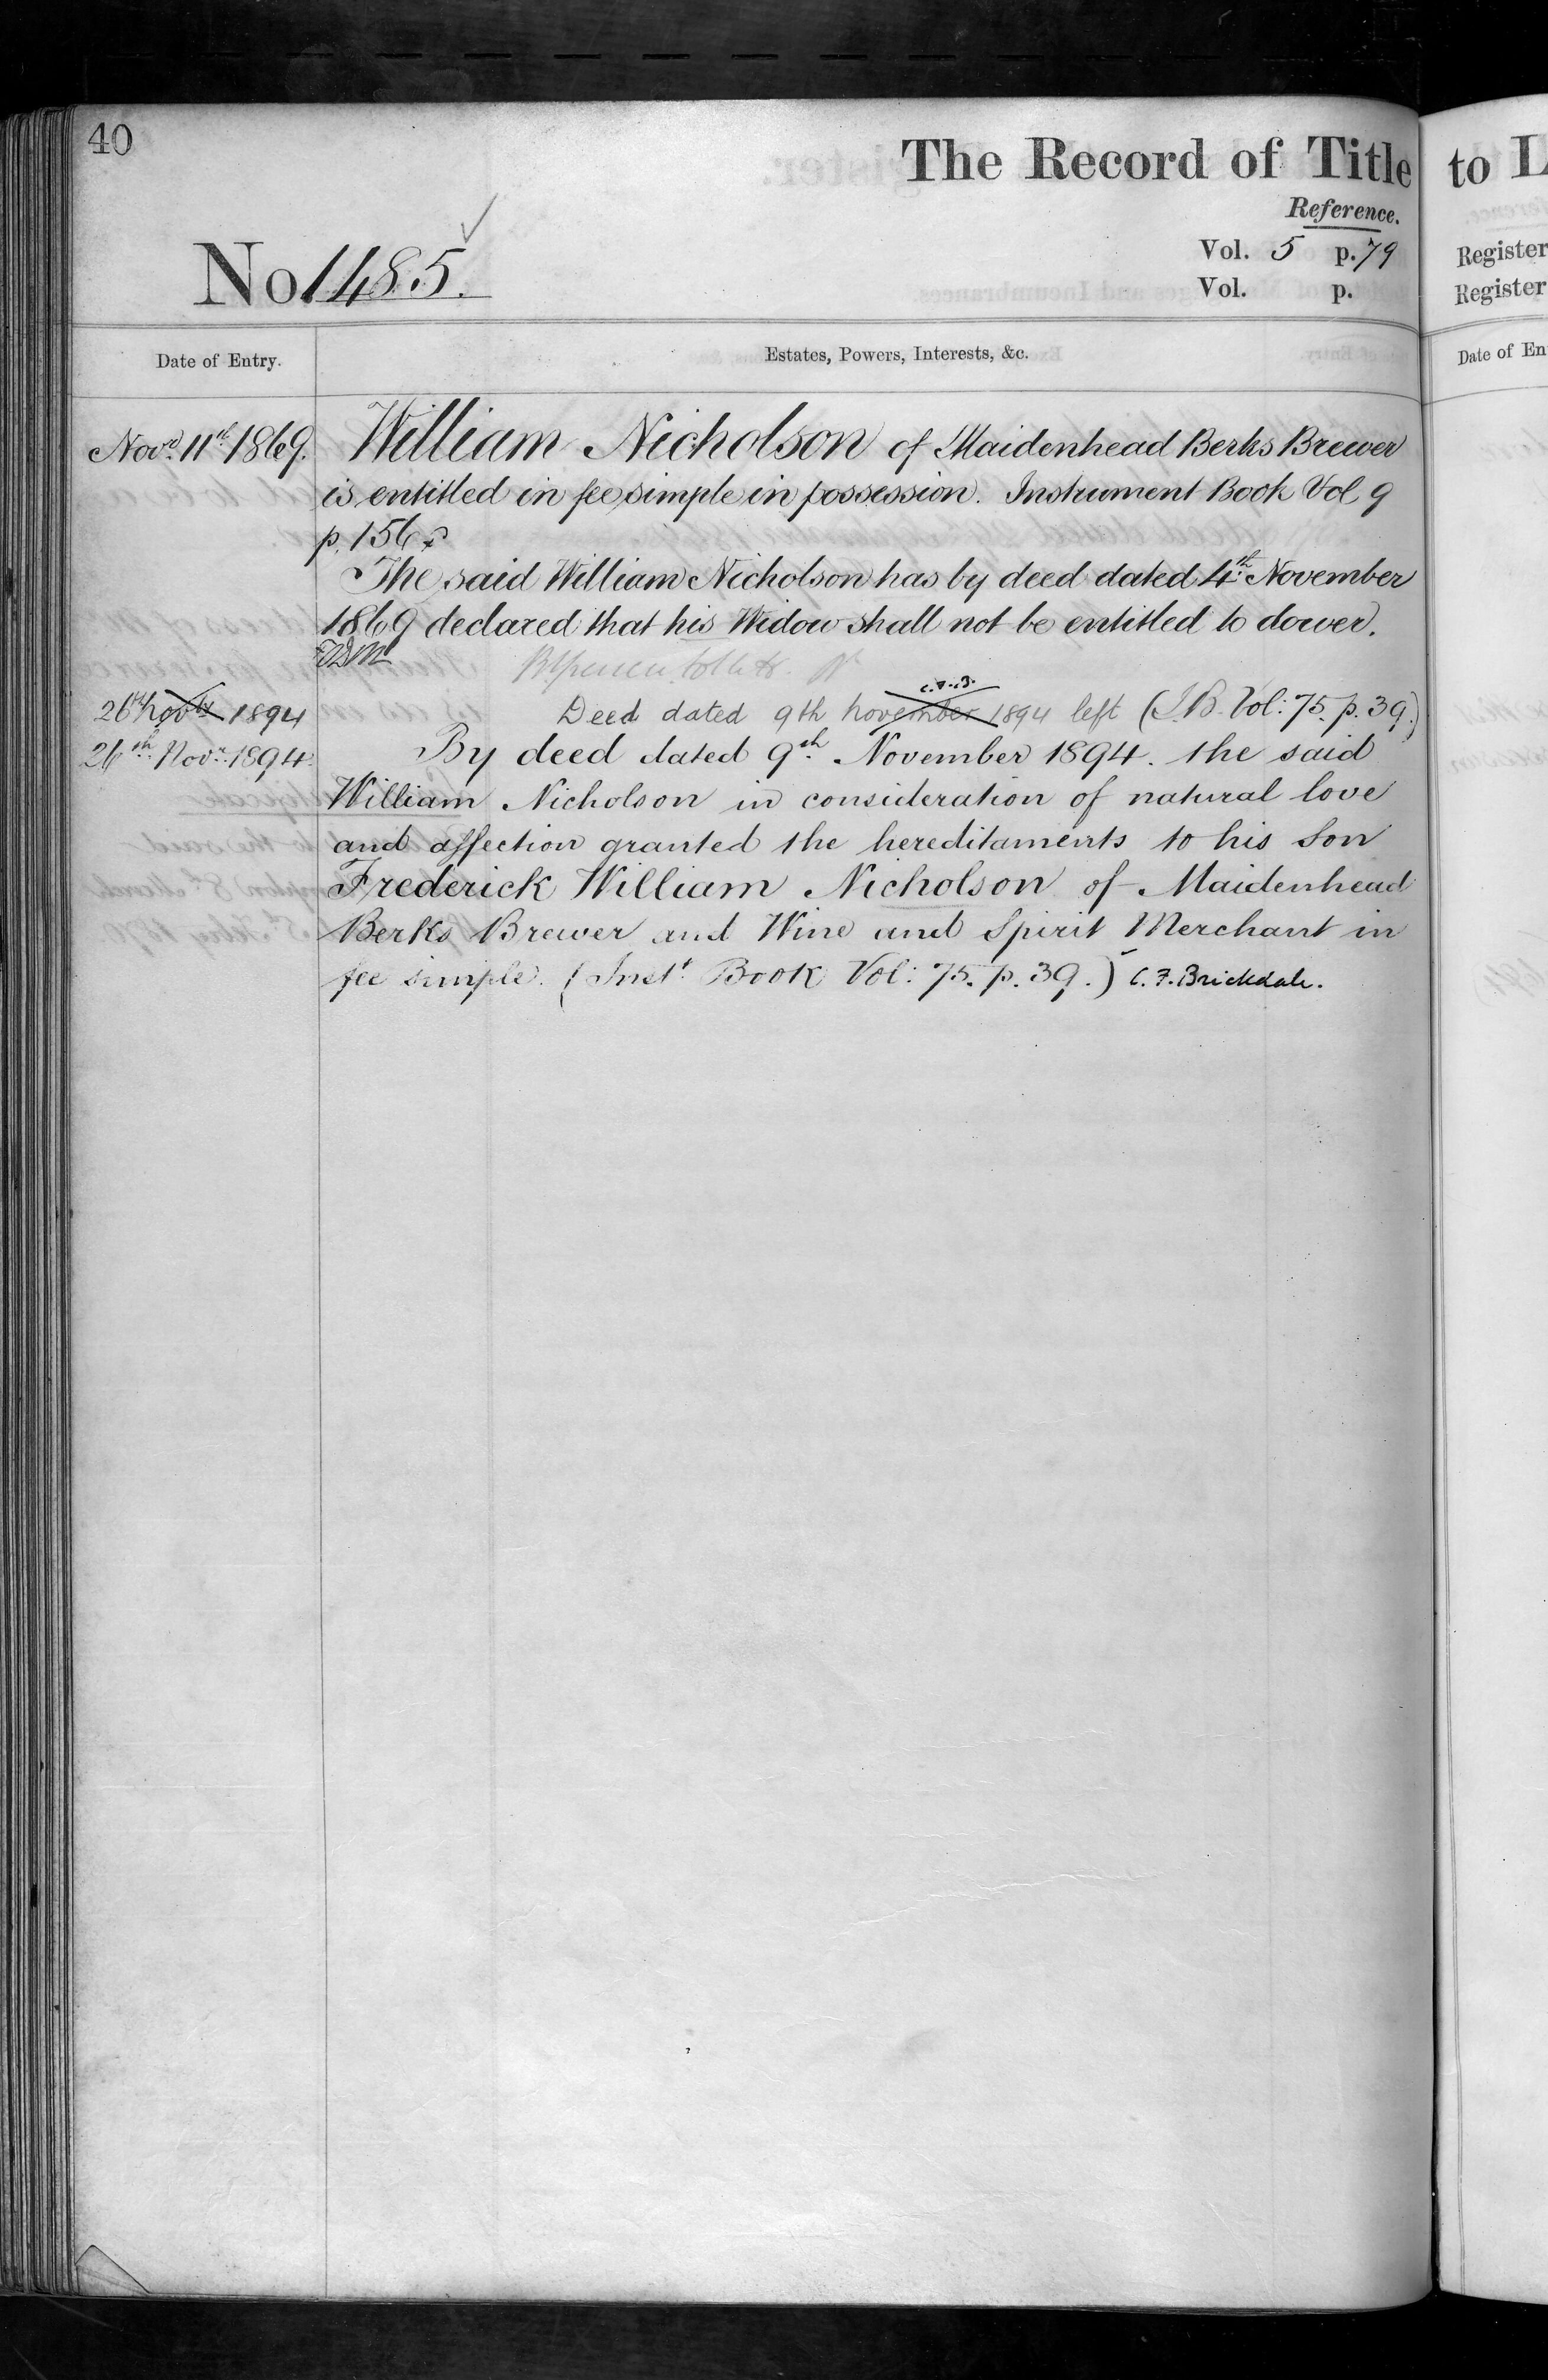 40
The Record of Title
to L
Reference.
No 1485.
Vol. 5 p. 79
Vol. p.
Register
Register
Date of Entry.
Estates, Powers, Interests, &c.
Date of En
Novr. 11th 1869. William Nicholson of Maidenhead Berks Brewer
is entitled in fee simple in possession. Instrument Book Vol 9
p. 156
The said William Nicholson has by deed dated 4th November
1869 declared that his Widow shall not be entitled to dower.
26th 1894 Deed dated 9th November 1894 left (I.B. Vol: 75. p. 39.)
26th Novr. 1894. By deed dated 9th November 1894. the said
William Nicholson in consideration of natural love
and affection granted the hereditaments to his Son
Frederick William Nicholson of Maidenhead
Berks Brewer and Wine and Spirit Merchant in
fee simple. (Inst. Book Vol: 75. p. 39.) C. F. Brickdale.